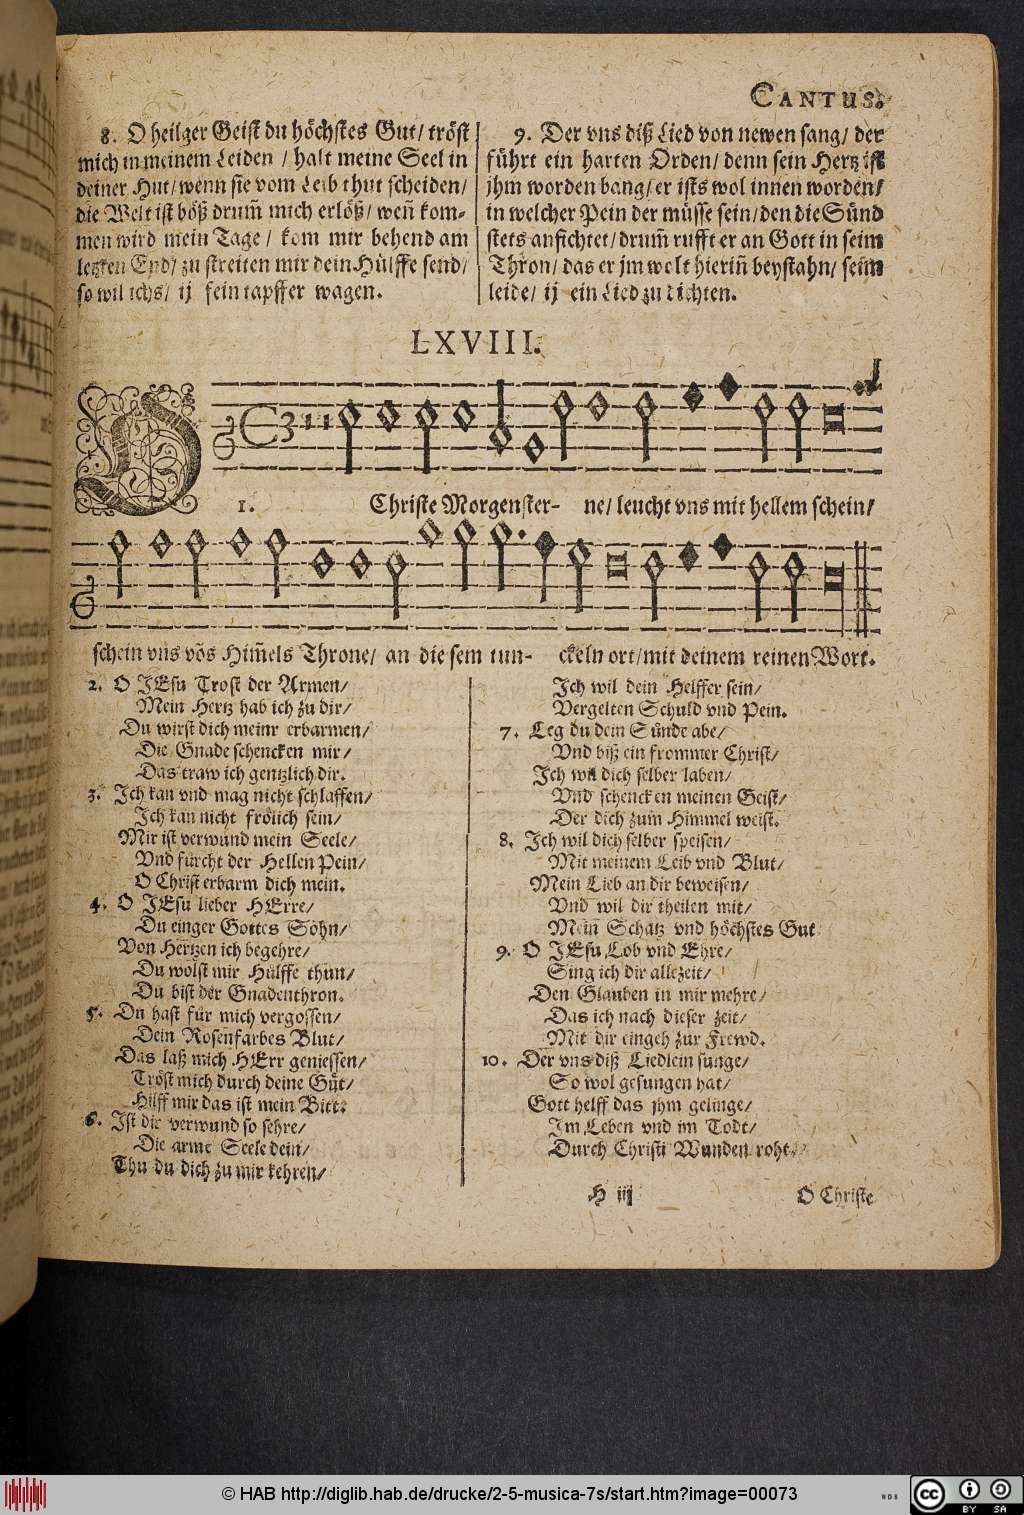 CANTUS.
8. O heilger Geist du höchstes Gut/ tröst
mich in meinem Leiden / halt meine Seel in
deiner Hut/ wenn sie vom Leib thut scheiden/
die Welt ist böß drum̃ mich erlöß/ weñ kom-
men wird mein Tage / kom mir behend am
letzten End/ zu streiten mir dein Hülffe send/
so wil ichs/ ij fein tapffer wagen.
9. Der vns diß Lied von newen sang/ der
führt ein harten Orden/ denn sein Hertz ist
jhm worden bang/ er ists wol innen worden/
in welcher Pein der müsse sein/ den die Sünd
stets anfichtet/ drum̃ rufft er an Gott in seim
Thron/ das er jm wolt hieriñ beystahn/ seim
leide/ ij ein Lied zu tichten.
LXVIII.
O
1. Christe Morgenster- ne/ leucht vns mit hellem schein/
schein vns võs Him̃els Throne/ an die sem tun- ckeln ort/ mit deinem reinen Wort.
2. O JEsu Trost der Armen/
Mein Hertz hab ich zu dir/
Du wirst dich meinr erbarmen/
Die Gnade schencken mir/
Das traw ich gentzlich dir.
3. Ich kan vnd mag nicht schlaffen/
Ich kan nicht frölich sein/
Mir ist verwund mein Seele/
Vnd fürcht der Hellen Pein/
O Christ erbarm dich mein.
4. O JEsu lieber HErre/
Du einger Gottes Söhn/
Von Hertzen ich begehre/
Du wölst mir Hülffe thun/
Du bist der Gnadenthron.
5. Du hast für mich vergossen/
Dein Rosenfarbes Blut/
Das laß mich HErr geniessen/
Tröst mich durch deine Güt/
Hilff mir das ist mein Bitt.
6. Ist dir verwund so sehre/
Die arme Seele dein/
Thu du dich zu mir kehren/
Ich wil dein Helffer sein/
Vergelten Schuld vnd Pein.
7. Leg du dein Sünde abe/
Vnd biß ein frommer Christ/
Ich wil dich selber laben/
Vnd schencken meinen Geist/
Der dich zum Himmel weist.
8. Ich wil dich selber speisen/
Mit meinem Leib vnd Blut/
Mein Lieb an dir beweisen/
Vnd wil dir theilen mit/
Mein Schatz vnd höchstes Gut
9. O JEsu Lob vnd Ehre/
Sing ich dir allezeit/
Den Glauben in mir mehre/
Das ich nach dieser zeit/
Mit dir eingeh zur Frewd.
10. Der vns diß Liedlein sunge/
So wol gesungen hat/
Gott helff das jhm gelinge/
Im Leben vnd im Todt/
Durch Christi Wunden roht.
H iij
O Christe
© HAB http://diglib.hab.de/drucke/2-5-musica-7s/start.htm?image=00073
WDB
cc
BY SA